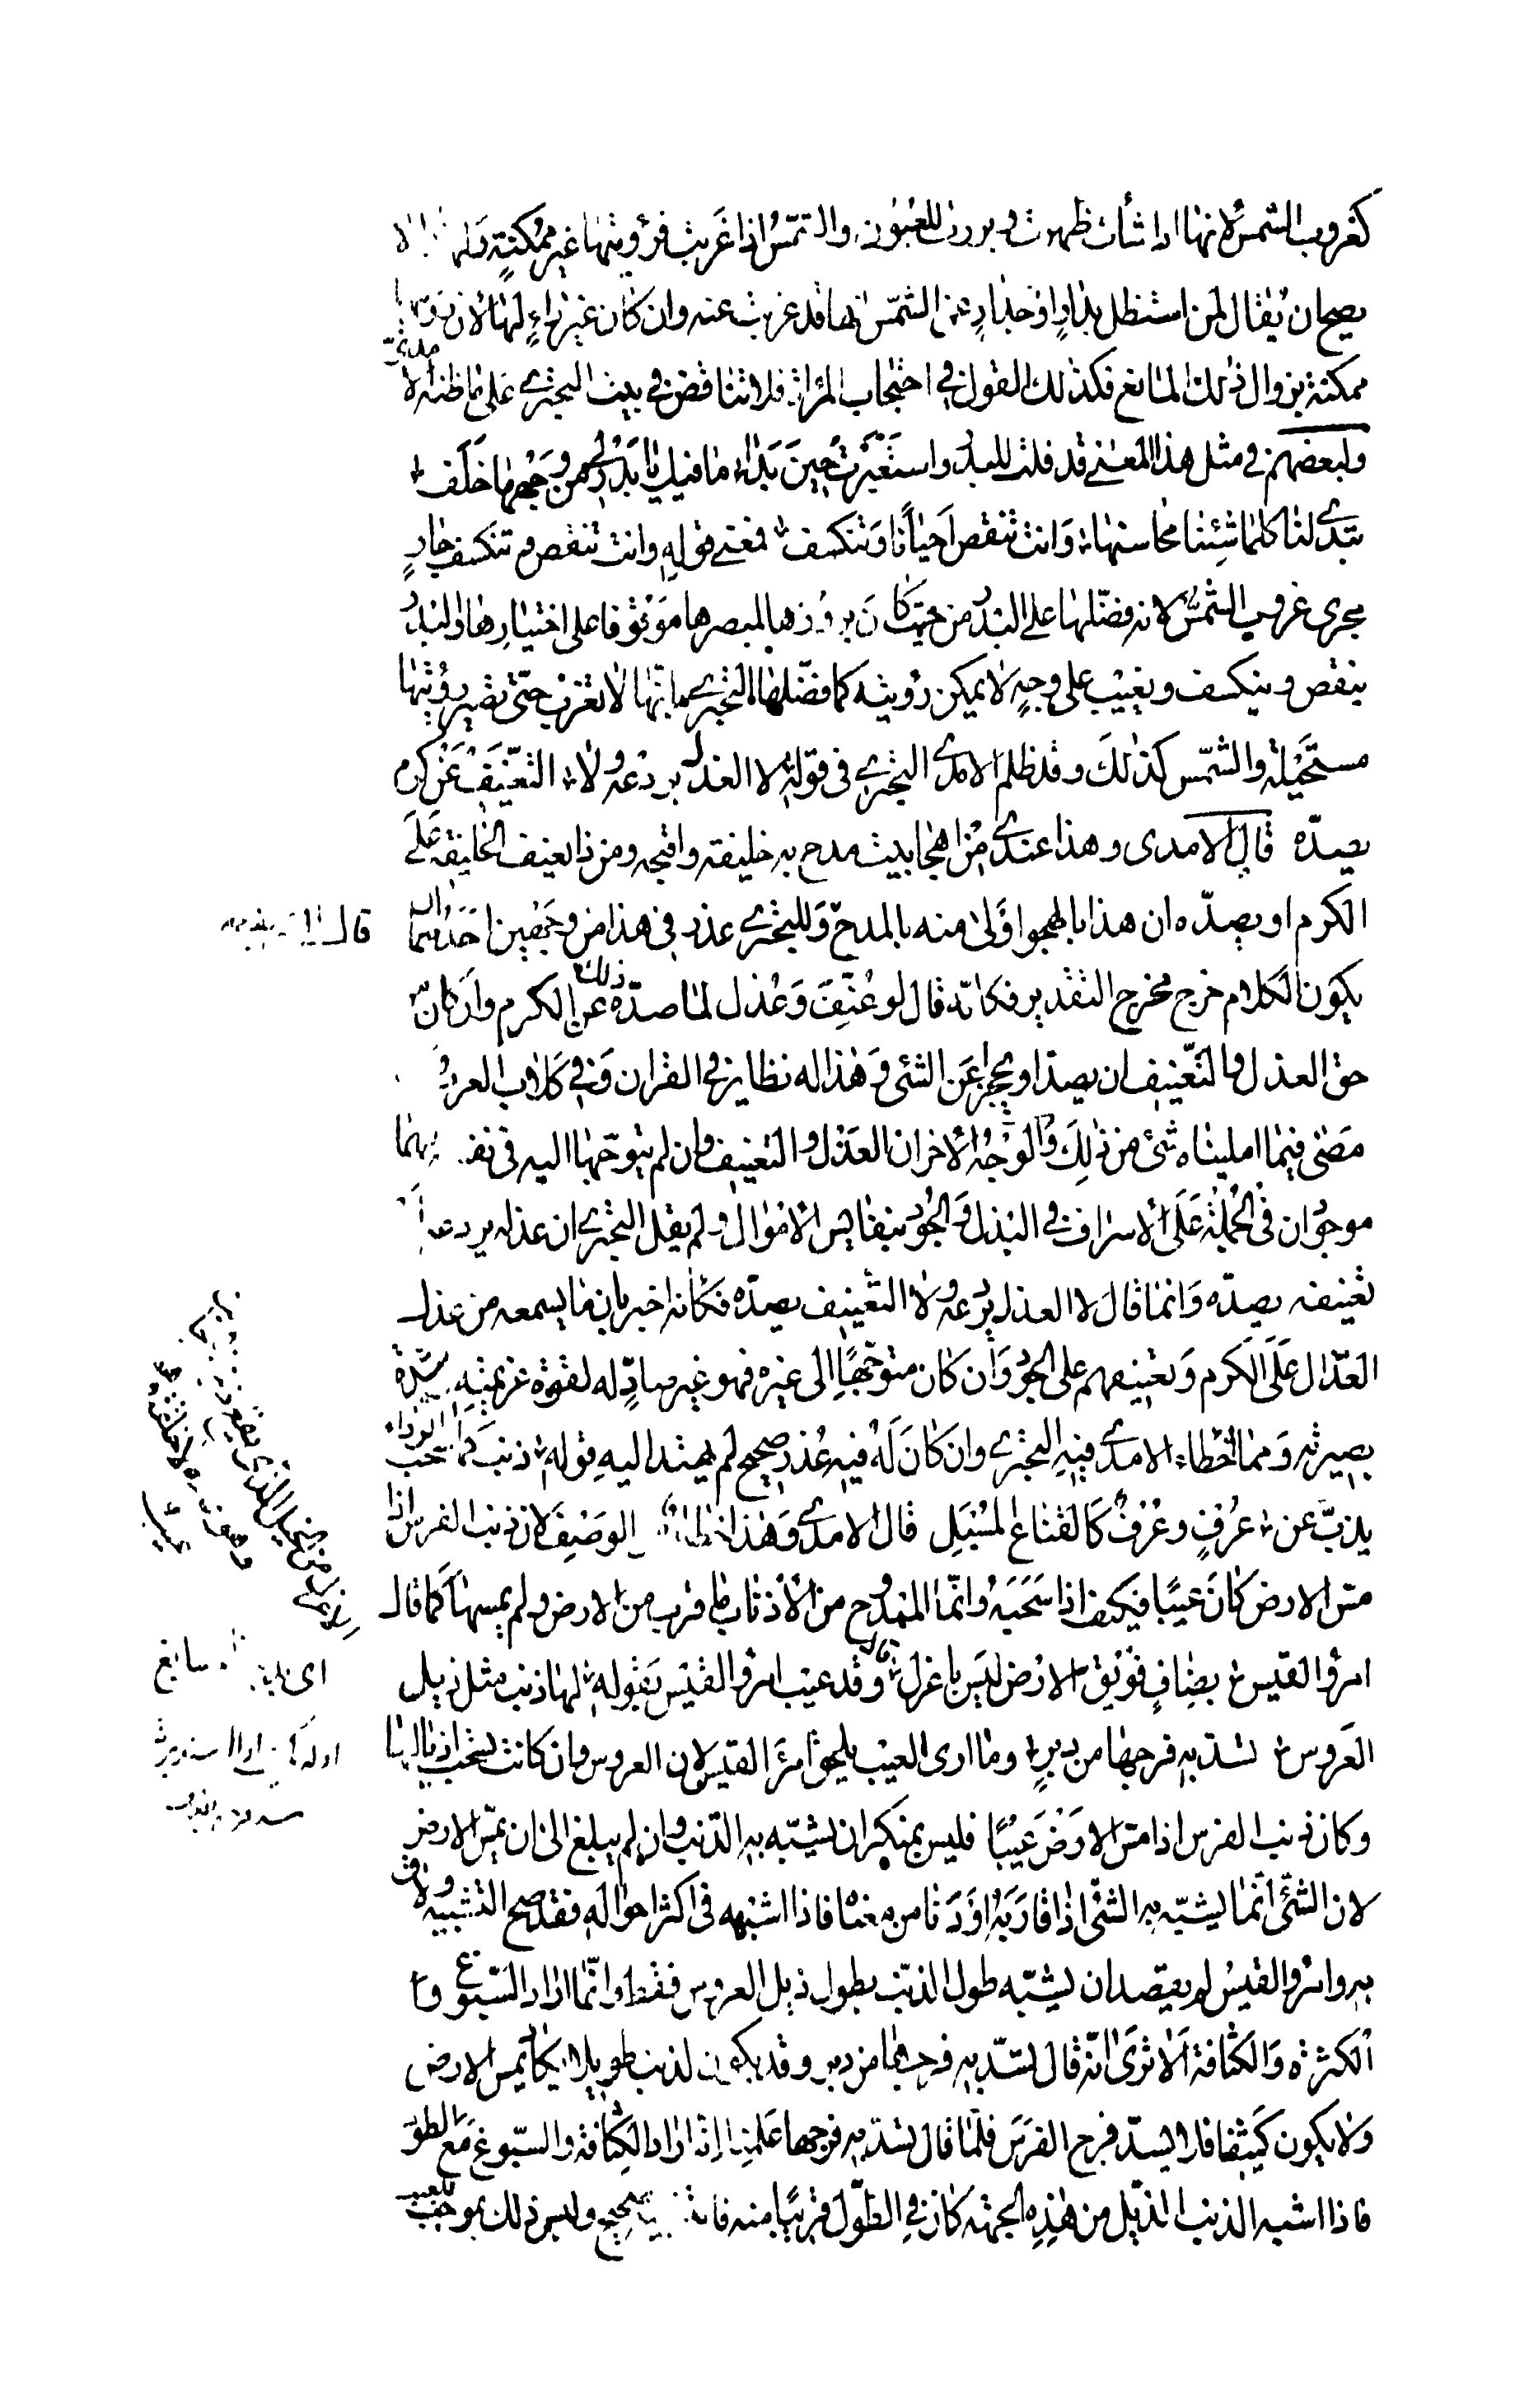 كغروب الشمس لانها اذا شأت ظهرت وبرزت للعيون والشمس اذا غربت فرؤيتها غير ممكنة ولهذا لا
يصح ان يقال لمن استظل بدار او جدار عن الشمس انها قد غربت عنه وان كان غير راء لها لان رؤيتها
ممكنة بزوال ذلك المانع فكذلك القول في احتجاب المرأة فلا تناقض في بيت البحتري على ما ظنه الامدي
ولبعضهم في مثل هذا المعنى قد قلت للبدر واستعبرت حين بدا ما فيك يا بدر لي من وجهها خلف
تبدي لنا كلما شئنا محاسنها وانت تنقص احيانا وتنكسف فمعنى قوله وانت تنقص وتنكسف جار
مجرى غروب الشمس لانه فضلها على البدر من حيث كان بروزها لمبصرها موقوفا على اختيارها والبدر
ينقص وينكسف ويغيب على وجه لا يمكن رؤيته كما فضلها البحتري بانها لا تغرب حتى تصير رؤيتها
مستحيلة والشمس كذلك وقد ظلم الامدي البحتري في قوله لا العذل يردعه ولا التعنيف عن كرم
يصده قال الامدى وهذا عندي من اهجا بيت مدح به خليفة واقبحه ومن ذا يعنف الخليفة على
الكرم او يصده ان هذا بالهجو اولى منه بالمدح وللبحتري عذر في هذا من وجهين احدهما ان
يكون الكلام خرج مخرج التقدير فكانه قال لو عنف وعذل لما صده ذلك عن الكرم وان كان من
حق العذل والتعنيف ان يصد او يحجز عن الشئ وهذا له نظاير في القران وفي كلام العرب وقد
مضى فيما امليناه شئ من ذلك والوجه الاخر ان العذل والتعنيف وان لم يتوجها اليه في نفسه فهما
موجودان في الجملة على الاسراف في البذل والجود بنفايس الاموال ولم يقل البحتري ان عذله يردعه او
تعنيفه يصده وانما قال لا العذل يردعه ولا التعنيف يصده فكانه اخبر بان ما يسمعه من عذل
العذال على الكرم وتعنيفهم على الجود وان كان متوجها الى غيره فهو غير صاد له لقوة عزيمته وشدة
بصيرته ومما خطاء الامدي فيه البحتري وان كان له فيه عذر صحيح لم يهتد اليه قوله ذنب كما سحب الرداء
يذب عن عرف وعرف كالقناع المسبل قال الامدي وهذا خطأ في الوصف لان ذنب الفرس اذا
مس الارض كان عيبا فكيف اذا سحبه وانما الممدوح من الاذناب ما قرب من الارض ولم يمسها كما قال
امرؤ القيس بضاف فويق الارض ليس باعزل قال وقد عيب امرؤ القيس بقوله لها ذنب مثل ذيل
العروس تسد به فرجها من دبر وما ارى العيب يلحق امرأ القيس لان العروس وان كانت تسحب اذيالها
وكان ذنب الفرس اذا مس الارض عيبا فليس بمنكر ان يشبه به الذنب وان لم يبلغ الى ان يمس الارض
لان الشئ انما يشبه به الشئ اذا قاربه او دنا من معناه فاذا اشبهه في اكثر احواله فقد صح التشبيه ولاق
به وامرؤ القيس لم يقصد ان يشبه طول الذنب بطول ذيل العروس فقط وانما اراد السبوغ و
الكثرة والكثافة الا ترى انه قال تسد به فرجها من دبر وقد يكون الذنب طويلا يكاد يمس الارض
ولا يكون كثيفا فلا يسد فرج الفرس فلما قال تسد به فرجها علمنا انه اراد الكثافة والسبوغ مع الطول
فاذا اشبه الذنب الذيل من هذه الجهة كان في الطول قريبا منه فالتشبيه صحيح وليس ذلك بموجب للعيب